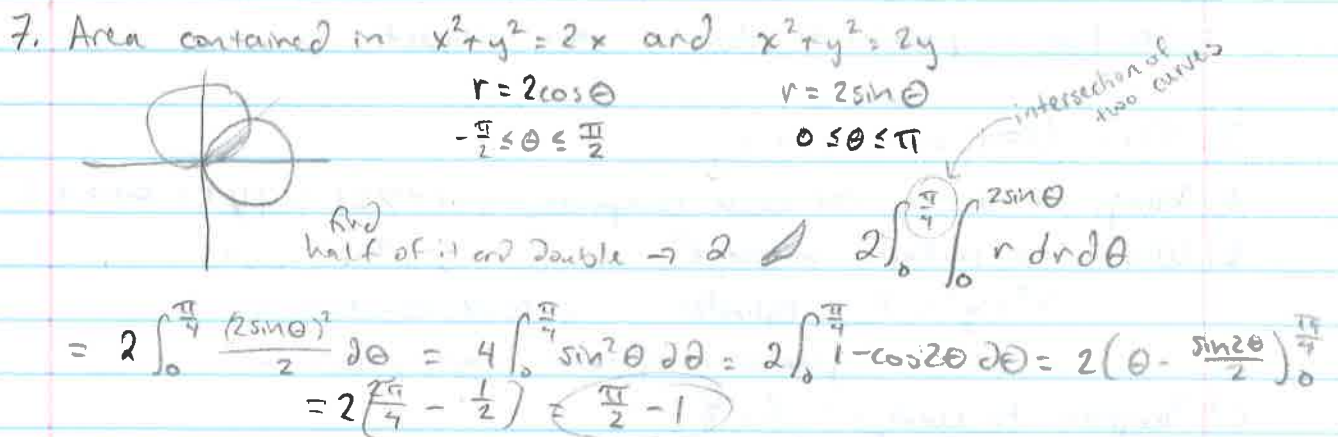 7. Area contained in x²+y² = 2x and x²+y² = 2y
r = 2cosΘ r = 2sinΘ
intersection of two curves
-π/2 ≤ Θ ≤ π/2 0 ≤ Θ ≤ π
find
half of it and double → 2 2∫₀^(π/4) ∫₀^(2sinΘ) r dr dΘ
= 2∫₀^(π/4) (2sinΘ)²/2 dΘ = 4∫₀^(π/4) sin²Θ dΘ = 2∫₀^(π/4) 1-cos2Θ dΘ = 2(Θ - sin2Θ/2)₀^(π/4)
= 2(π/4 - 1/2) = π/2 - 1